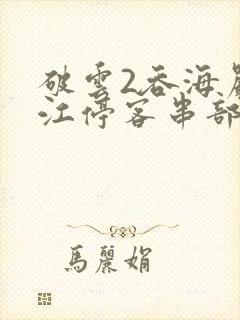 破雲2吞海
江停客串部
馬麗娟